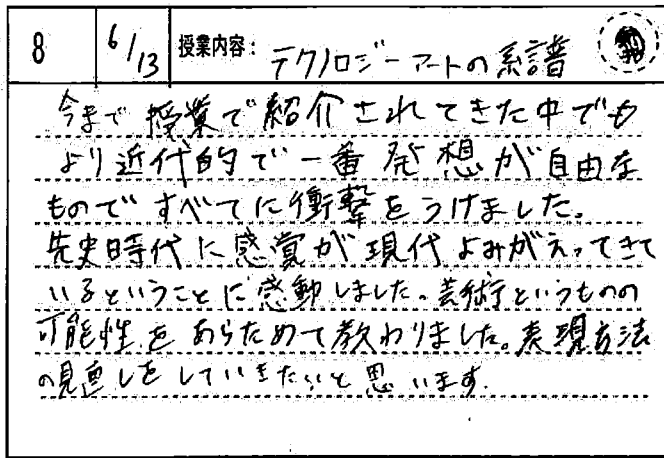 8 6/13 授業内容: テクノロジーアートの系譜
今まで授業で紹介されてきた中でも
より近代的で一番発想が自由な
ものですべてに衝撃をうけました。
先史時代に感覚が現代よみがえってきて
いるということに感動しました。芸術というものの
可能性をあらためて教わりました。表現方法
の見直しをしていきたいと思います。